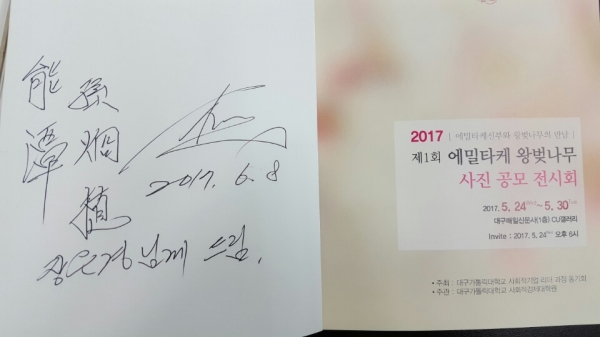 能潭
張炯植
2017. 6. 8
님께 드림.
2017 | 에밀타케신부와 왕벚나무의 만남 |
제1회 에밀타케 왕벚나무
사진 공모 전시회
2017. 5. 24 ~ 5. 30
대구매일신문사(1층) CU갤러리
Invite : 2017. 5. 24 오후 6시
• 주최 : 대구가톨릭대학교 사회적기업 리더 과정 동기회
• 주관 : 대구가톨릭대학교 사회적경제대학원